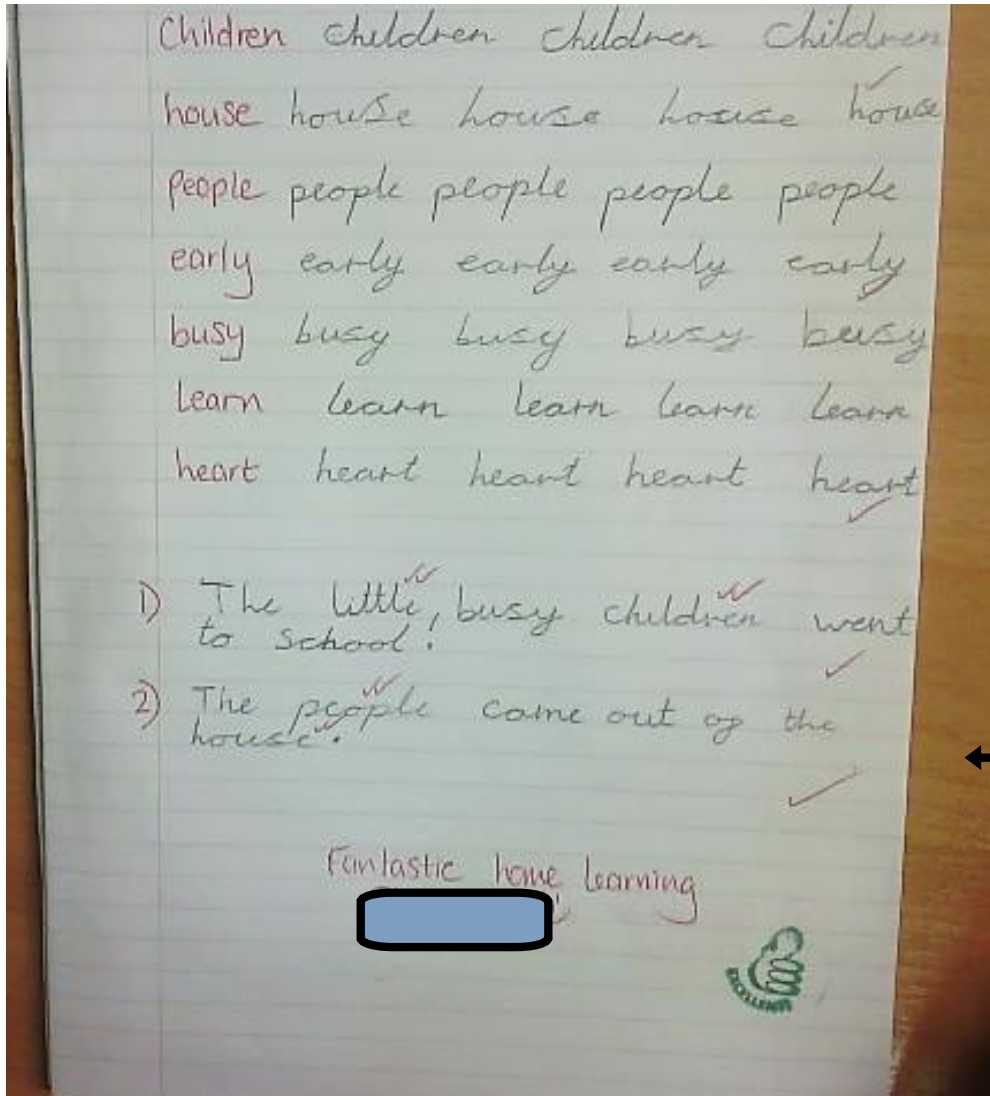 Children children children children
house house house house house
People people people people people
early early early early early
busy busy busy busy busy
Learn learn learn learn learn
heart heart heart heart heart
1) The little, busy children went
to school.
2) The people came out of the
house.
Fantastic home learning
EXCELLENT